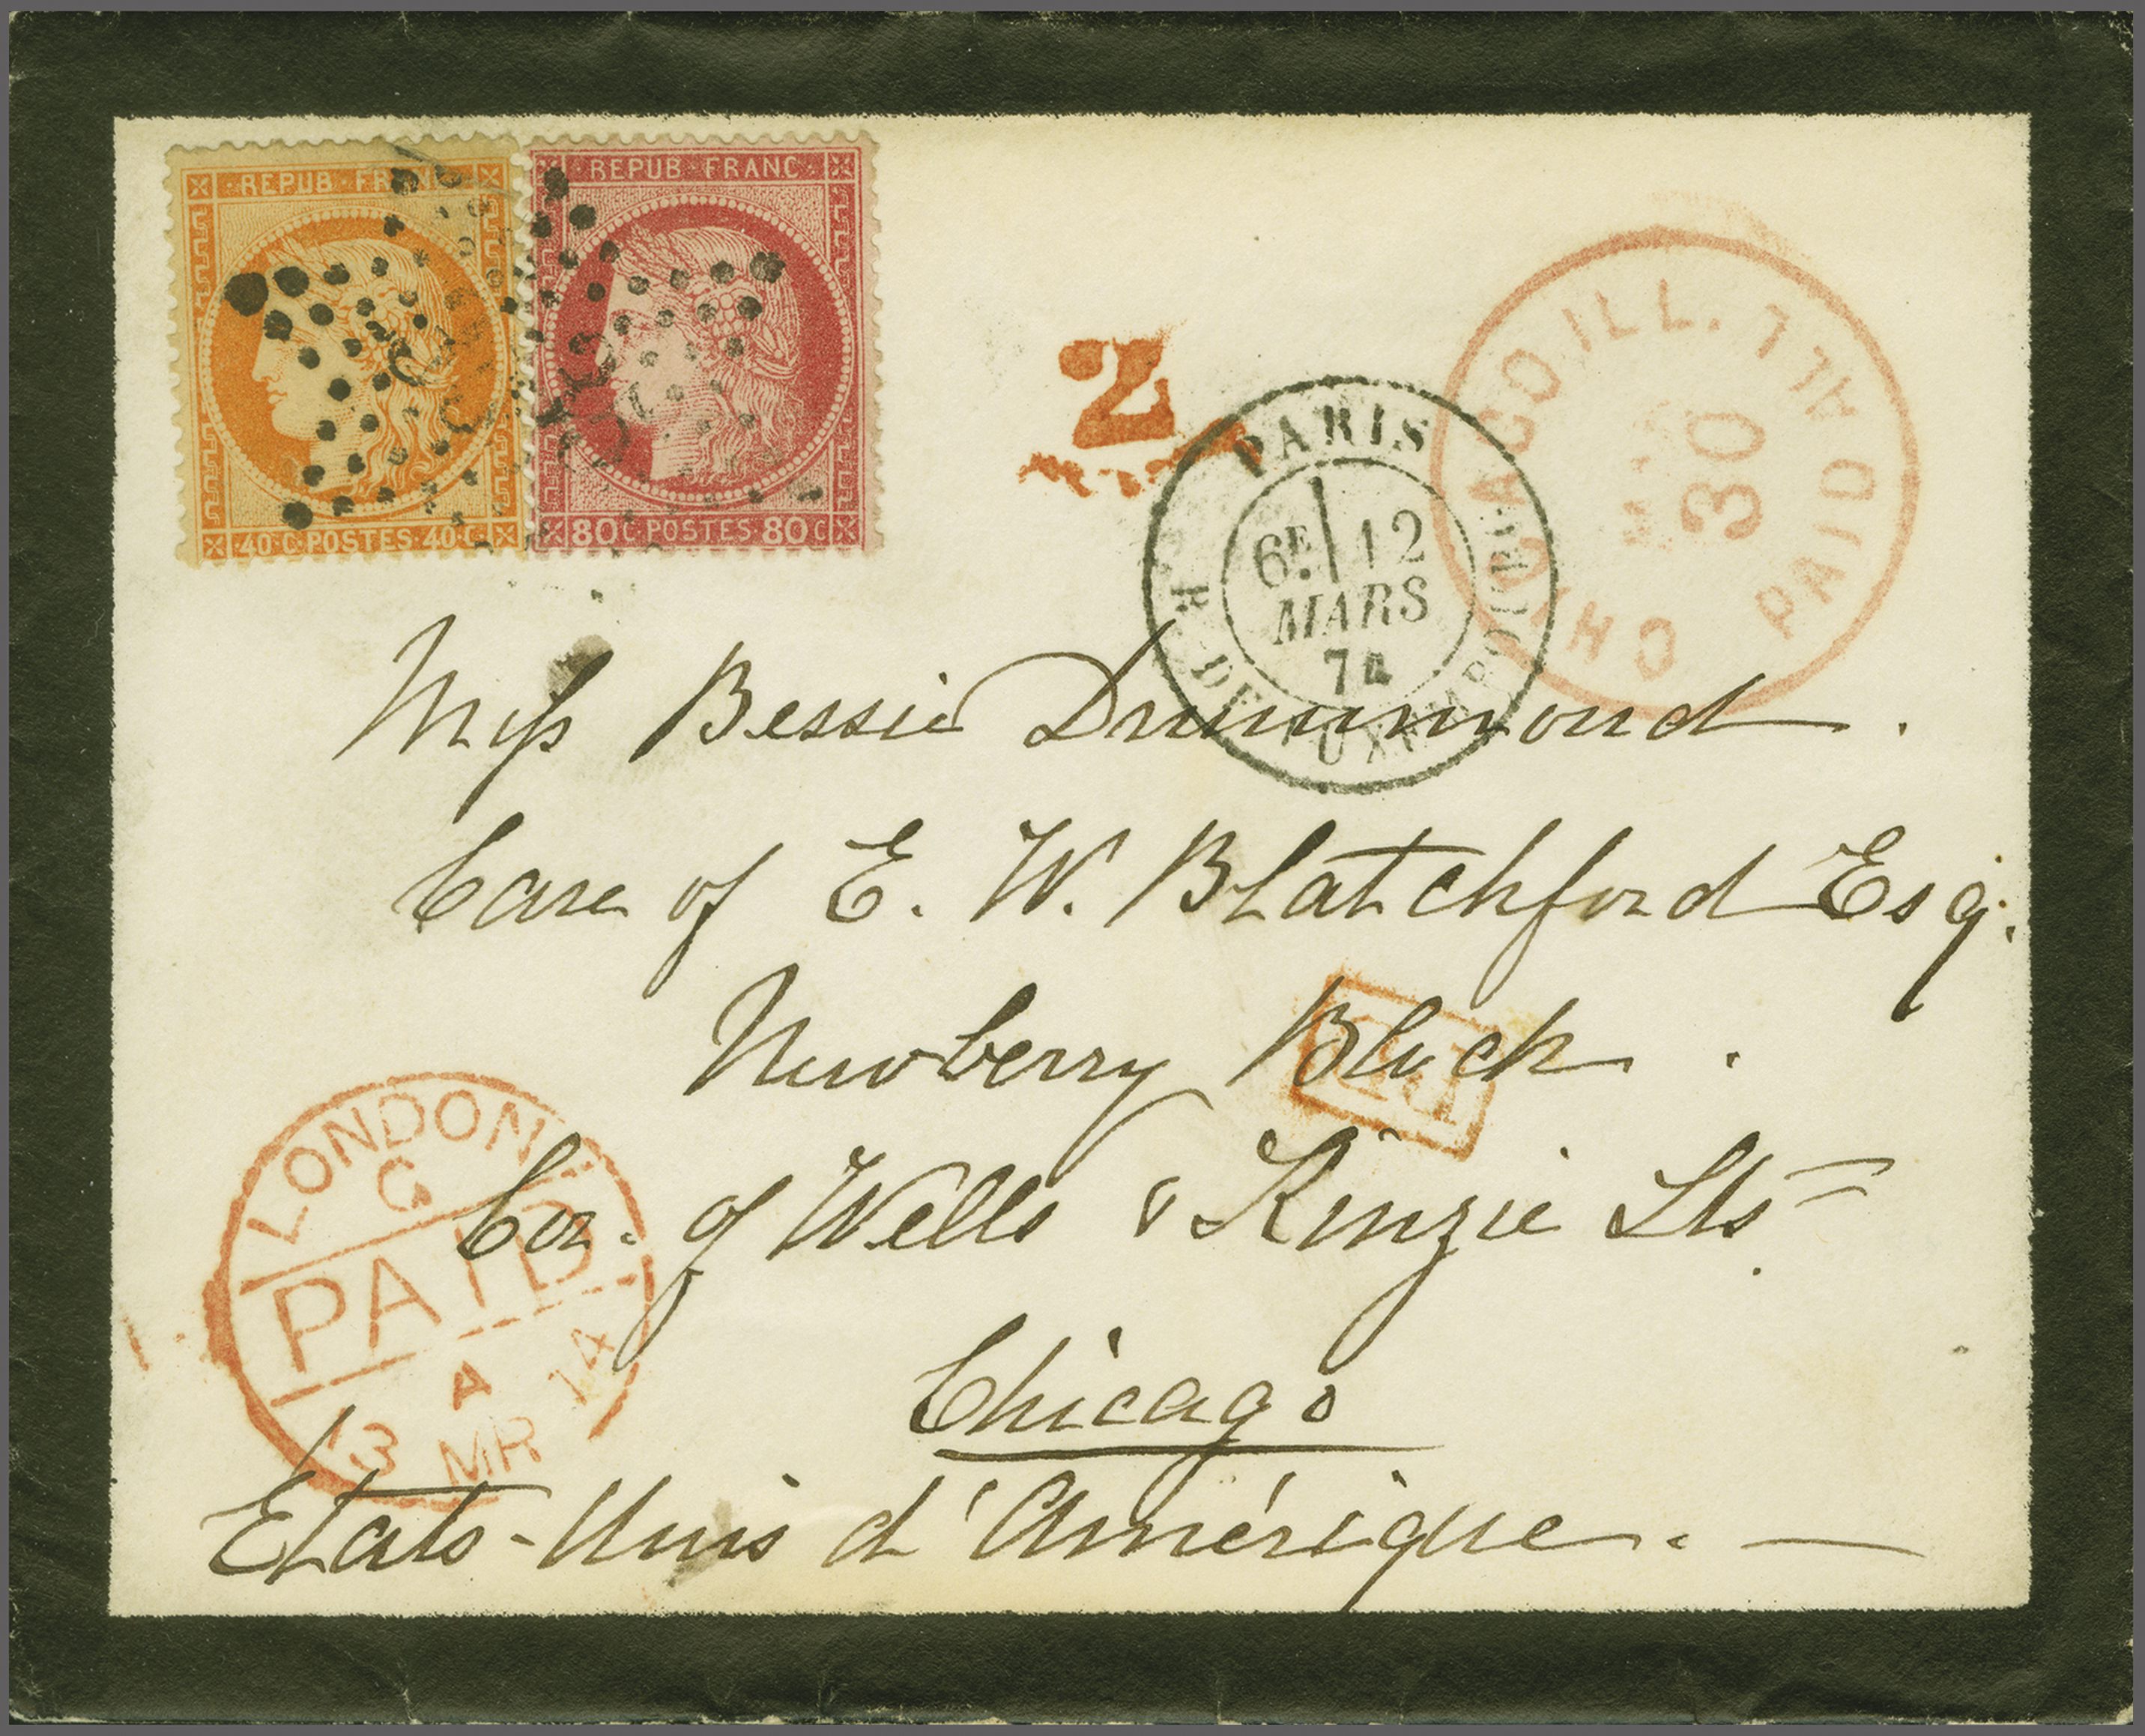 REPUB·FRANC
40·C·POSTES·40·C
REPUB·FRANC·
80C·POSTES·80C
2
CHICAGO ILL.
PAID ALL
30
PARIS
6E. 12
MARS
74
Miss Bessie Drummond.
Care of E. W. Blatchford Esq.
Newberry Block.
Cor. of Wells & Kinzie Sts
Chicago
États-Unis d'Amérique. —
LONDON
G
PAID
A
13 MR 74